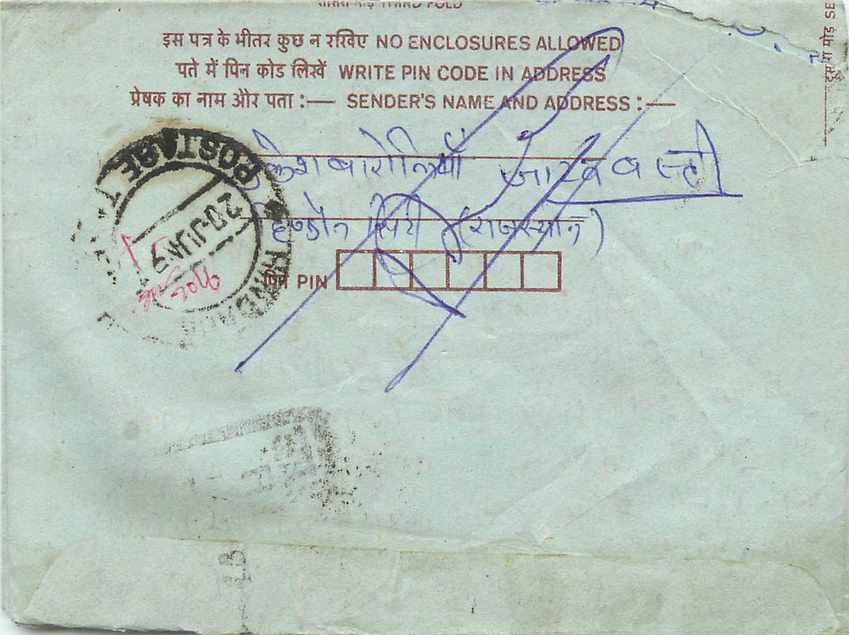 तीसरा मोड़ THIRD FOLD
इस पत्र के भीतर कुछ न रखिए NO ENCLOSURES ALLOWED
पते में पिन कोड लिखें WRITE PIN CODE IN ADDRESS
प्रेषक का नाम और पता :— SENDER'S NAME AND ADDRESS :—
जाटव बस्ती
हिण्डौन सिटी (राजस्थान)
पिन PIN
POSTAGE
20 JUN 9